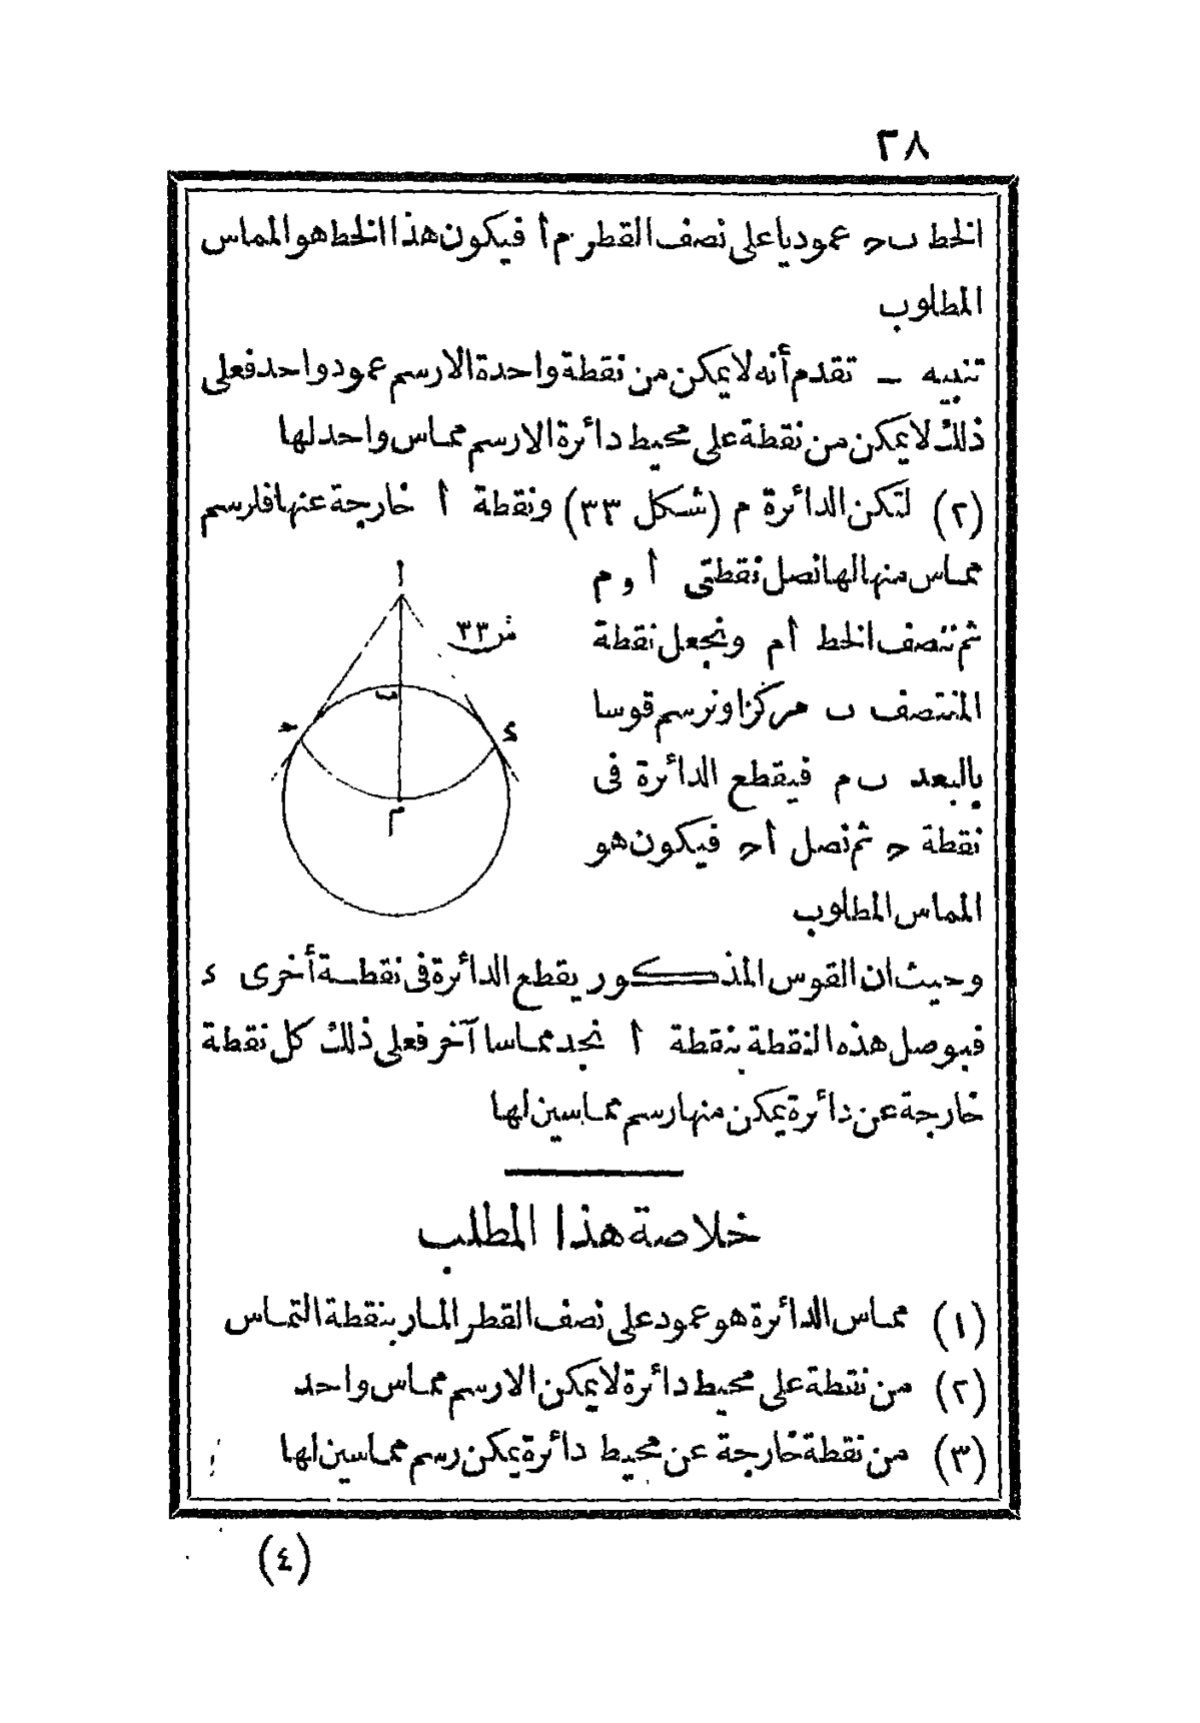 ٢٨
الخط ٮ ح عموديا على نصف القطر م أ فيكون هذا الخط هو المماس
المطلوب
تنبيه ـ تقدم أنه لا يمكن من نقطة واحدة الا رسم عمود واحد فعلى
ذلك لا يمكن من نقطة على محيط دائرة الا رسم مماس واحد لها
(٢) لتكن الدائرة م (شكل ٣٣) ونقطة أ خارجة عنها فلرسم
مماس منها الها نصل نقطتى أ و م
ثم ننصف الخط أم ونجعل نقطة
المنتصف ٮ مركزا ونرسم قوسا
بالبعد ٮ م فيقطع الدائرة فى
نقطة ح ثم نصل أح فيكون هو
المماس المطلوب
أ
ش ٣٣
ٮ
ح
ء
م
وحيث ان القوس المذكور يقطع الدائرة فى نقطة أخرى ء
فبوصل هذه النقطة بنقطة أ نجد مماسا آخر فعلى ذلك كل نقطة
خارجة عن دائرة يمكن منها رسم مماسين لها
خلاصة هذا المطلب
(١) مماس الدائرة هو عمود على نصف القطر المار بنقطة التماس
(٢) من نقطة على محيط دائرة لا يمكن الا رسم مماس واحد
(٣) من نقطة خارجة عن محيط دائرة يمكن رسم مماسين لها
(٤)